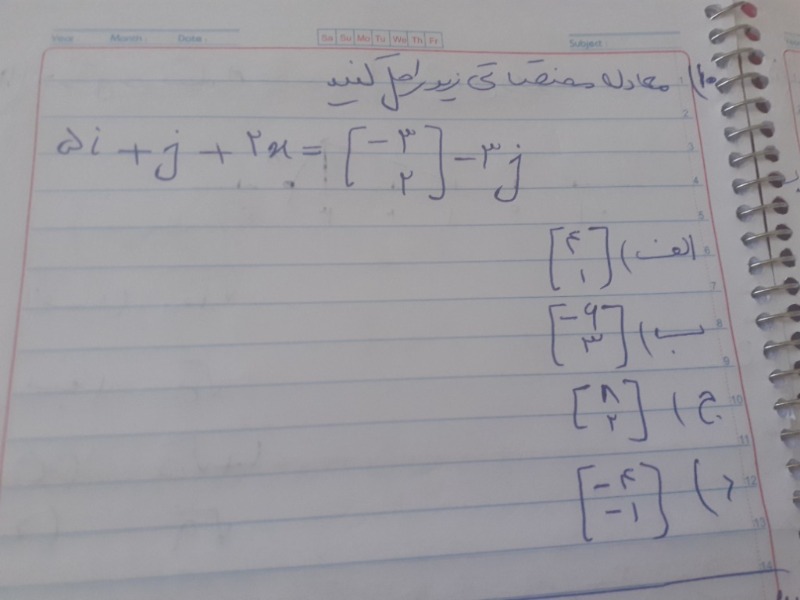 Year Month Date Sa Su Mo Tu We Th Fr Subject
۱۰) معادله مختصاتی زیر را حل کنید
۵i + j + ۲x = [-۳ ۲] - ۳j
الف) [۴ ۱]
ب) [-۶ ۳]
ج) [۸ ۲]
د) [-۴ -۱]